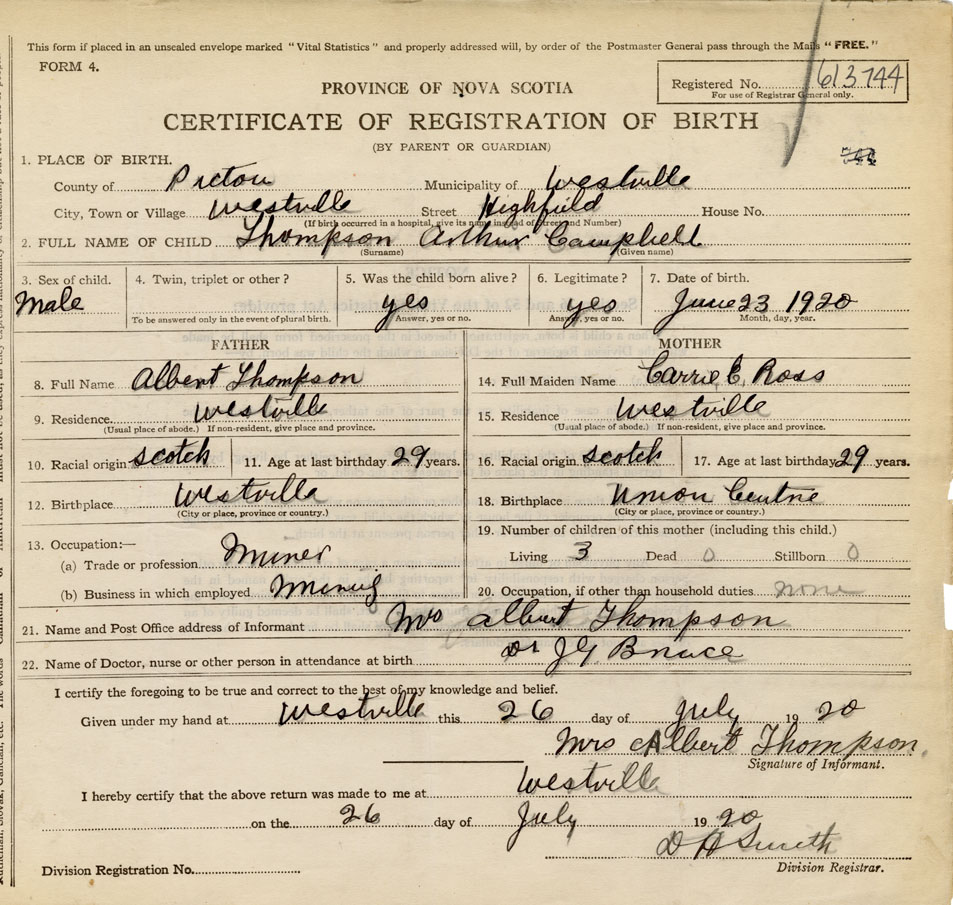 This form if placed in an unsealed envelope marked "Vital Statistics" and properly addressed will, by order of the Postmaster General pass through the Mails "FREE."
FORM 4.
Registered No. 613744
For use of Registrar General only.
PROVINCE OF NOVA SCOTIA
CERTIFICATE OF REGISTRATION OF BIRTH
(BY PARENT OR GUARDIAN)
1. PLACE OF BIRTH.
County of Pictou Municipality of Westville
City, Town or Village Westville Street Highfield House No.
(If birth occurred in a hospital, give its name instead of Street and Number)
2. FULL NAME OF CHILD Thompson Arthur Campbell
(Surname) (Given name)
3. Sex of child. 4. Twin, triplet or other? 5. Was the child born alive? 6. Legitimate? 7. Date of birth.
Male yes yes June 23 1920
To be answered only in the event of plural birth. Answer, yes or no. Answer, yes or no. Month, day, year.
FATHER MOTHER
8. Full Name Albert Thompson 14. Full Maiden Name Carrie E. Ross
9. Residence. Westville 15. Residence Westville
(Usual place of abode.) If non-resident, give place and province. (Usual place of abode.) If non-resident, give place and province.
10. Racial origin scotch 11. Age at last birthday 29 years. 16. Racial origin scotch 17. Age at last birthday 29 years.
12. Birthplace Westville 18. Birthplace Union Centre
(City or place, province or country.) (City or place, province or country.)
13. Occupation:— 19. Number of children of this mother (including this child.)
(a) Trade or profession Miner Living 3 Dead 0 Stillborn 0
(b) Business in which employed Mining 20. Occupation, if other than household duties none
21. Name and Post Office address of Informant Mrs Albert Thompson
22. Name of Doctor, nurse or other person in attendance at birth Dr J G Bruce
I certify the foregoing to be true and correct to the best of my knowledge and belief.
Given under my hand at Westville this 26 day of July 1920
Mrs Albert Thompson.
Signature of Informant.
I hereby certify that the above return was made to me at Westville
on the 26 day of July 1920
D H Smith
Division Registration No. Division Registrar.